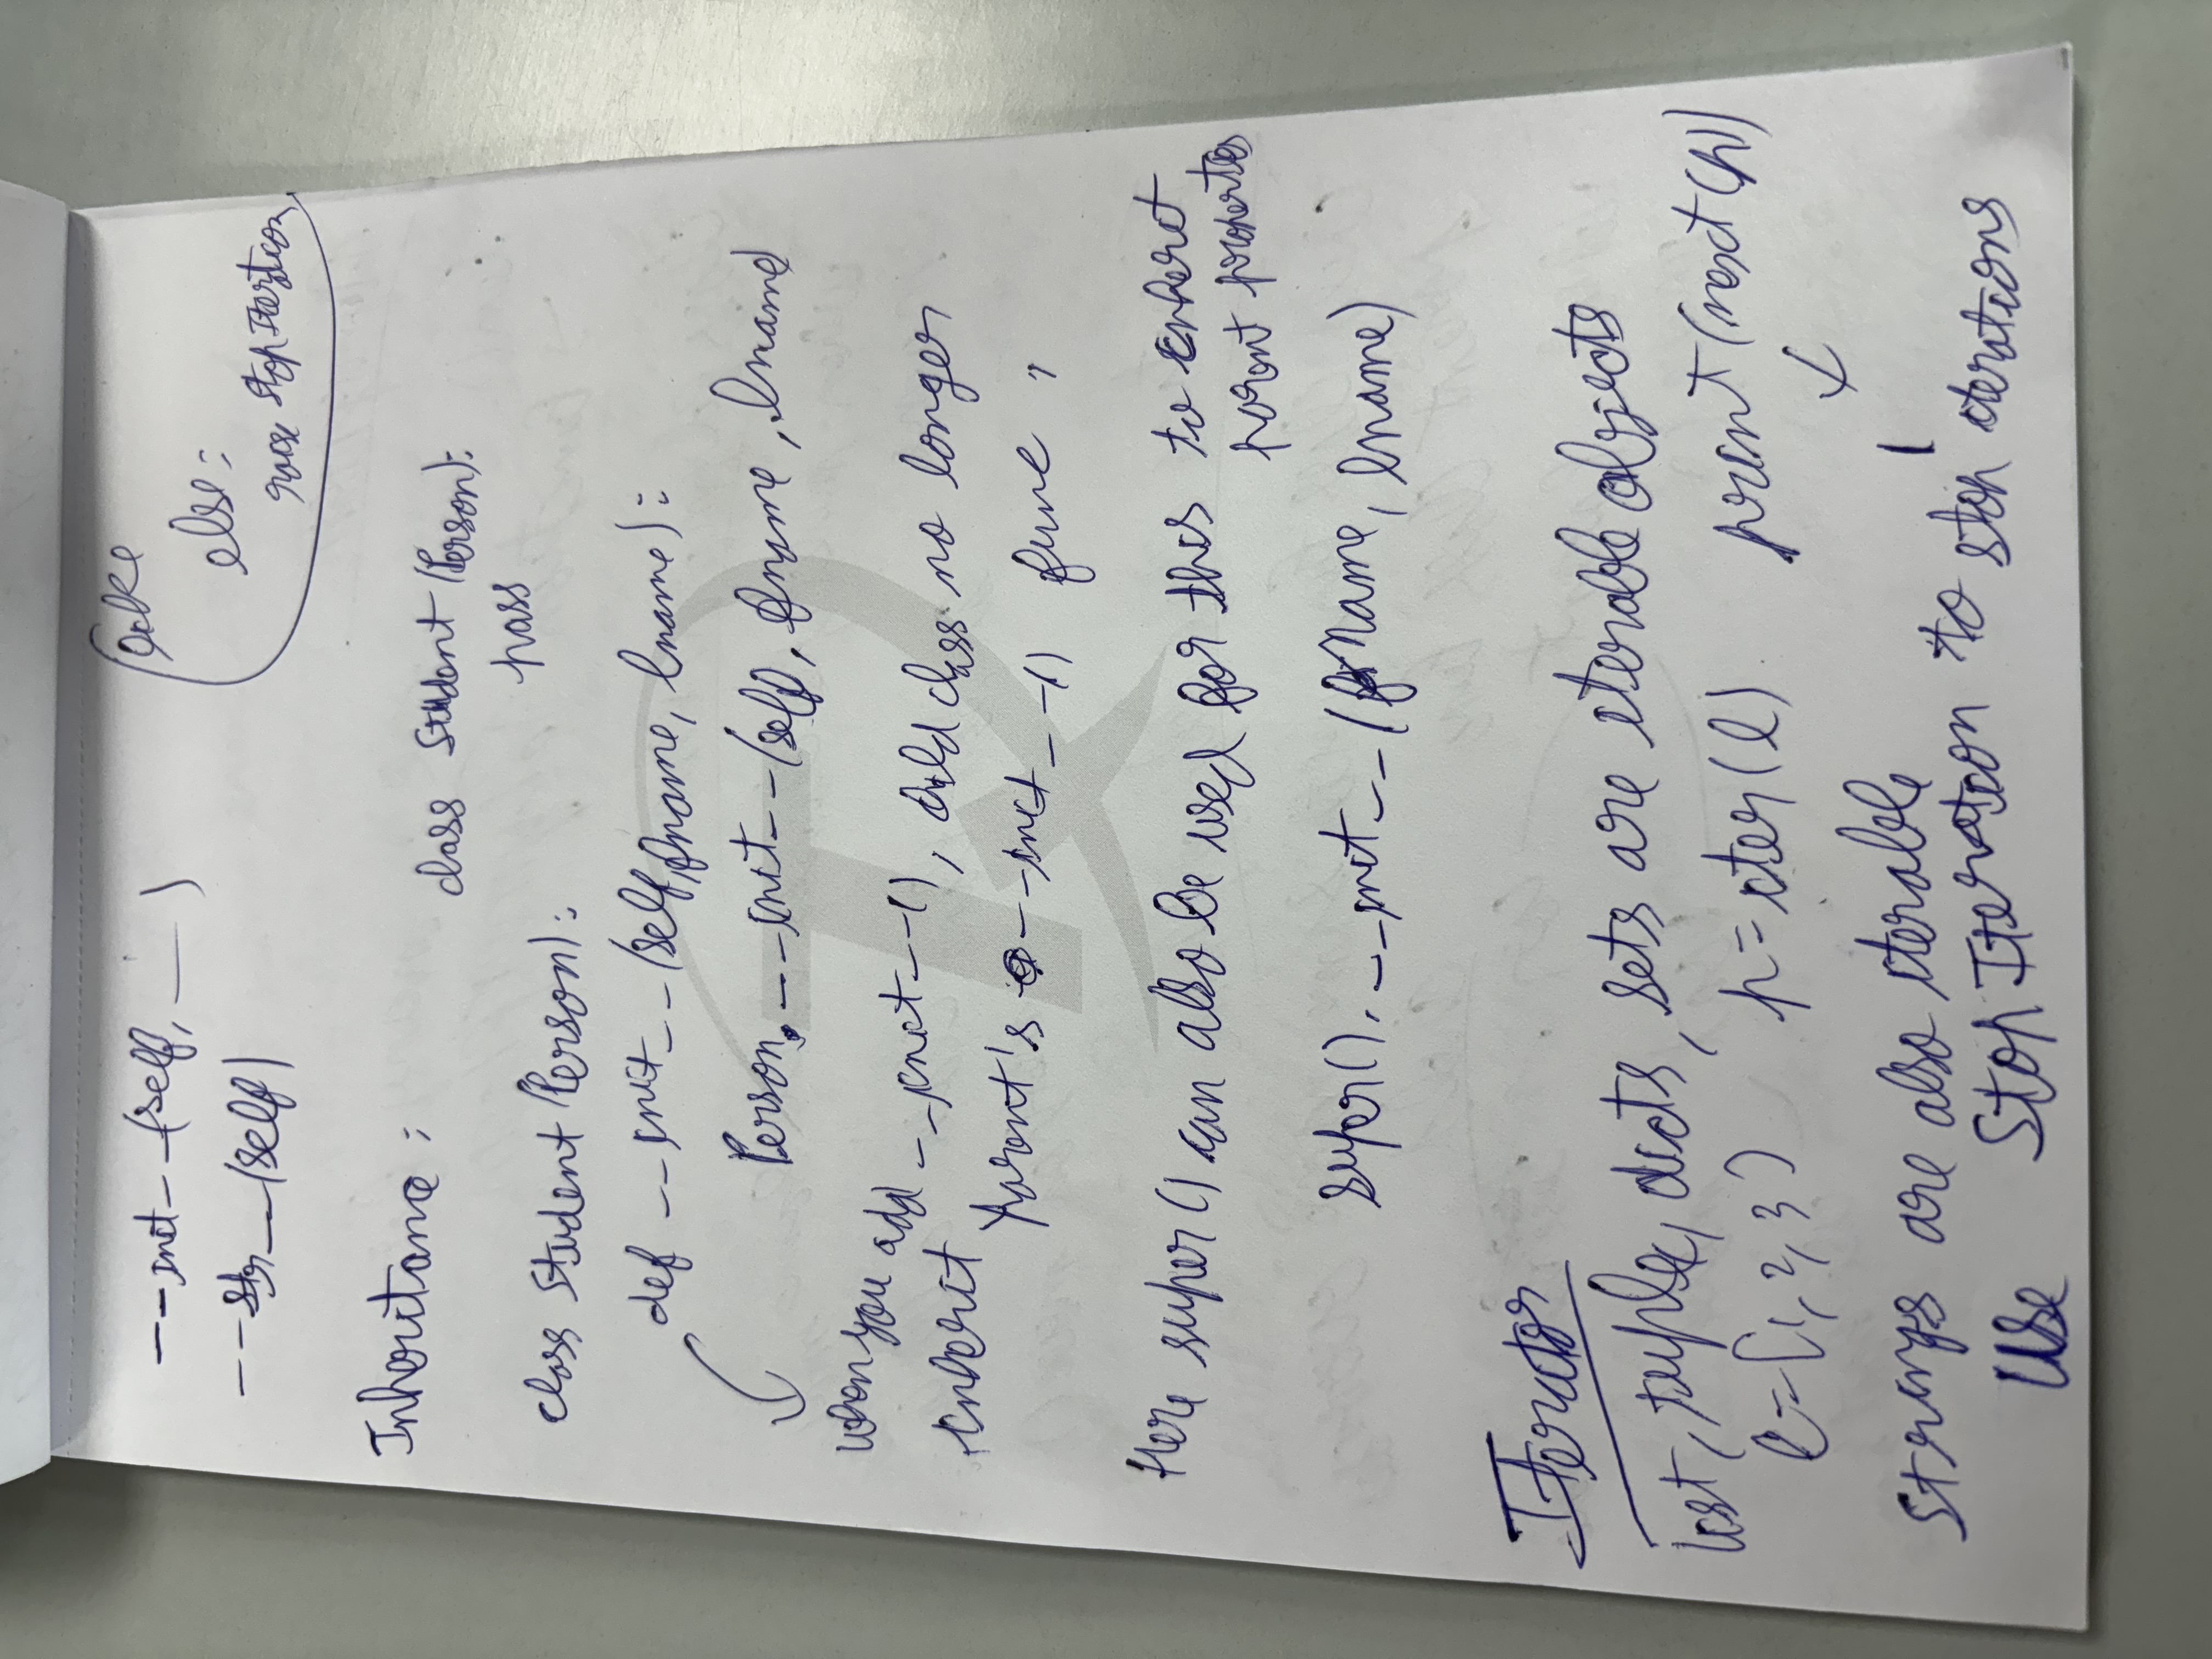 __init__(self, __)
__str__(self)
like
else:
raise StopIteration
Inheritance:
class Student(Person):
pass
class Student(Person):
def __init__(self, fname, lname):
Person.__init__(self, fname, lname)
When you add __init__(), child class no longer
inherit parent's __init__() func,
Here super() can also be used for this to inherit
parent properties
super().__init__(fname, lname)
Iterator
list, tuple, dicts, sets are iterable objects
l=[1, 2, 3] p=iter(l) print(next(p))
1
Strings are also iterable
Use StopIteration to stop iterations